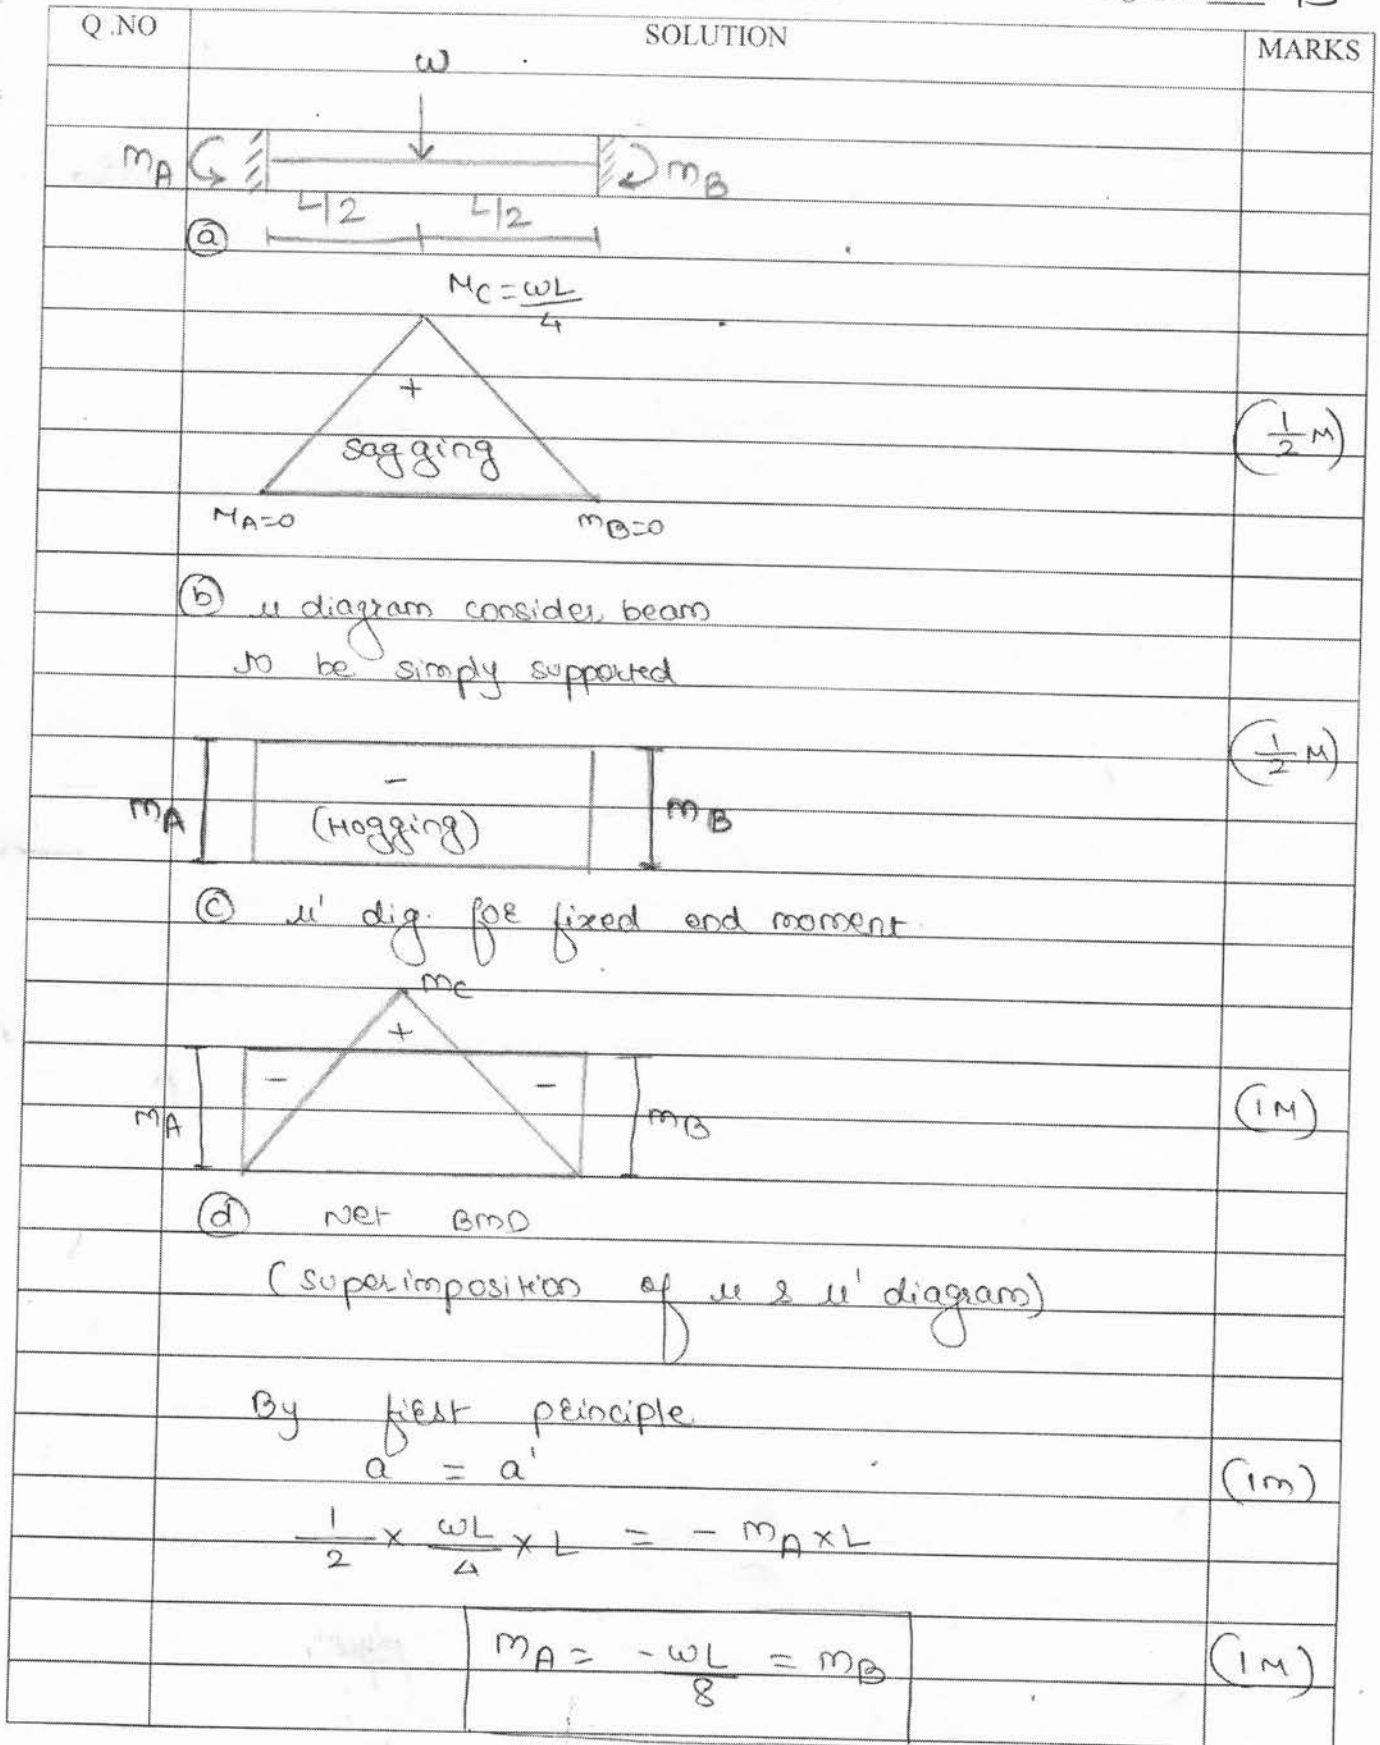 Q.NO SOLUTION MARKS
ω
mA mB
L/2 L/2
(a)
MC = ωL/4
+
sagging
(1/2 M)
MA=0 mB=0
(b) μ diagram consider beam
to be simply supported
(1/2 M)
-
mA (Hogging) mB
(c) μ' dig. for fixed end moment
mc
+
- -
mA mB (1M)
(d) Net BMD
(superimposition of μ & μ' diagram)
By first principle
a = a' (1m)
1/2 × ωL/4 × L = - mA × L
mA = -ωL/8 = mB (1M)